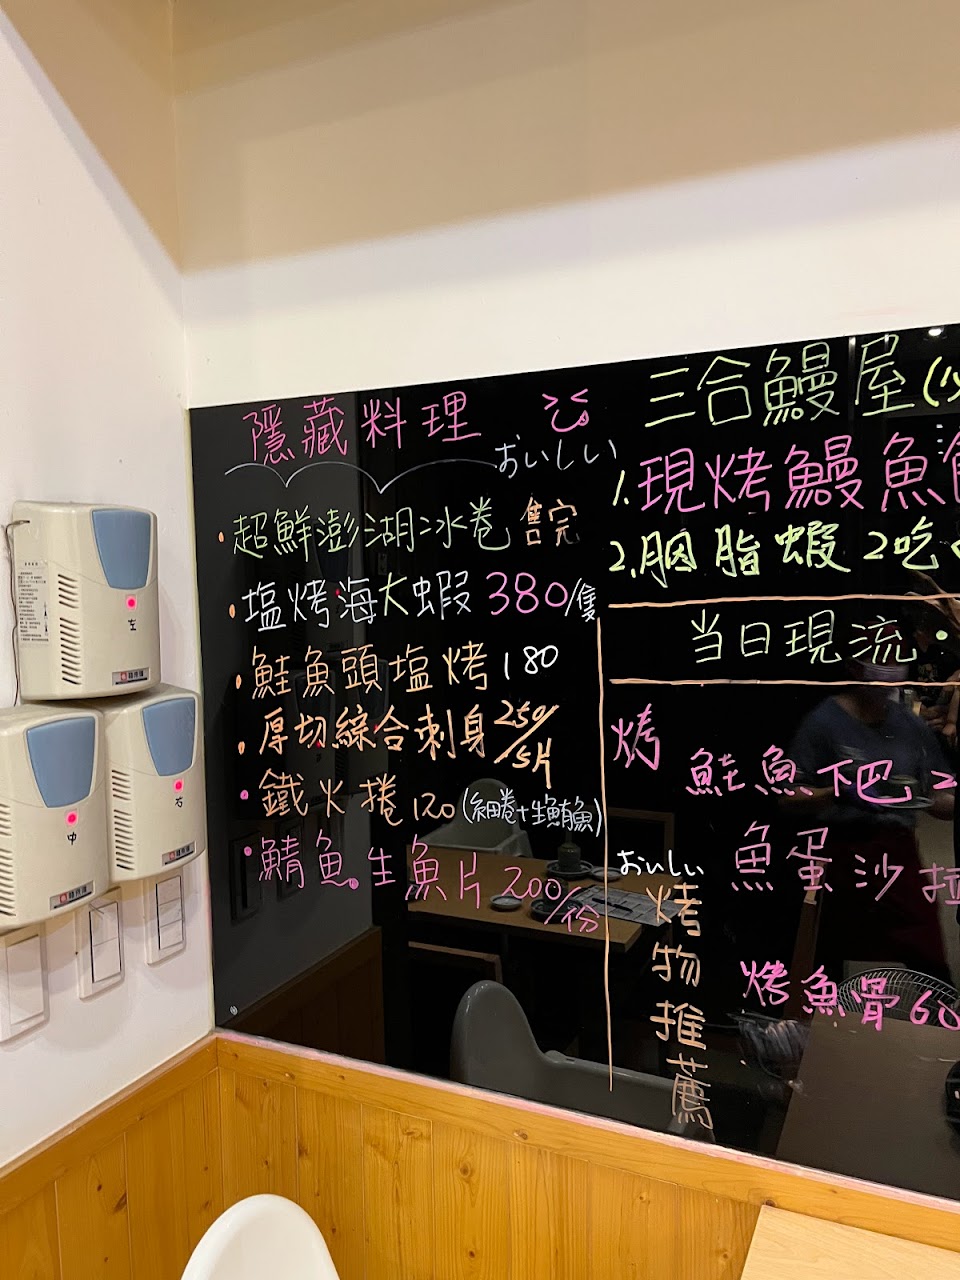 隱藏料理
おいしい
·超鮮澎湖冰卷 售完
·塩烤海大蝦 380/隻
·鮭魚頭塩烤 180
·厚切綜合刺身 250/5片
·鐵火捲 120 (細卷+生鮪魚)
·鯖魚生魚片 200/份
三合鰻屋
1.現烤鰻魚
2.胭脂蝦 2吃
当日現流·
烤
鮭魚下巴 2
魚蛋沙拉
烤魚骨 60
おいしい
烤物推薦
左
中
右